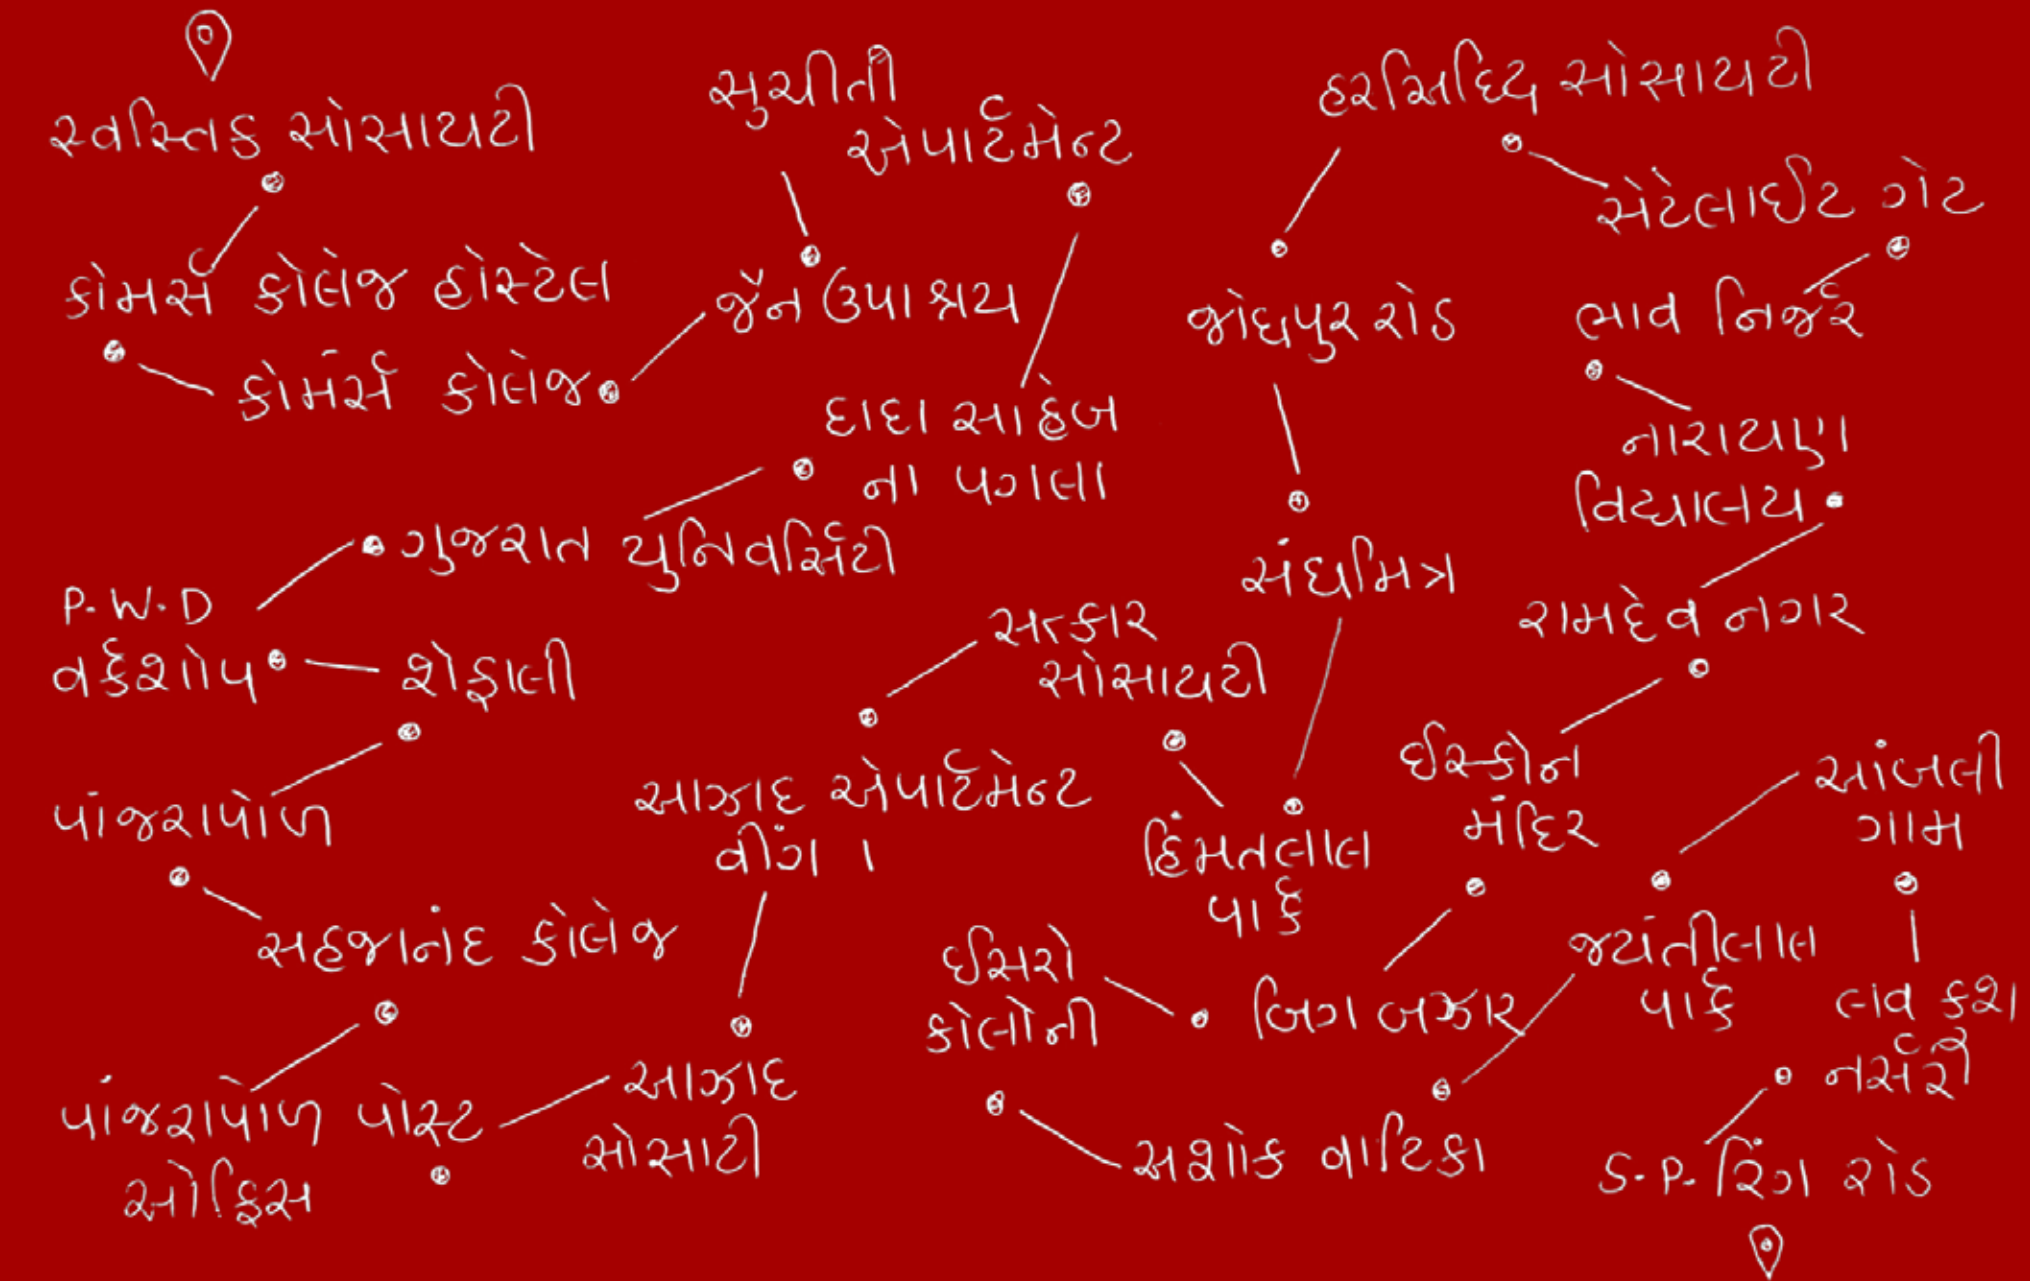 સ્વસ્તિક સોસાયટી
કોમર્સ કોલેજ હોસ્ટેલ
કોમર્સ કોલેજ
જૈન ઉપાશ્રય
સુચીતી
એપાર્ટમેન્ટ
દાદા સાહેબ
ના પગલા
ગુજરાત યુનિવર્સિટી
P.W.D
વર્કશોપ
શેફાલી
પાંજરાપોળ
સહજાનંદ કોલેજ
પાંજરાપોળ પોસ્ટ
ઓફિસ
આઝાદ
સોસાટી
આઝાદ એપાર્ટમેન્ટ
વીંગ ૧
સત્કાર
સોસાયટી
હિંમતલાલ
પાર્ક
સંઘમિત્ર
જોધપુર રોડ
હરસિદ્ધિ સોસાયટી
સેટેલાઈટ ગેટ
ભાવ નિર્જર
નારાયણ
વિદ્યાલય
રામદેવ નગર
ઈસ્કોન
મંદિર
બિગ બઝાર
ઈસરો
કોલોની
અશોક વાટિકા
જયંતીલાલ
પાર્ક
આંબલી
ગામ
લવ કશ
નર્સરી
S.P. રિંગ રોડ